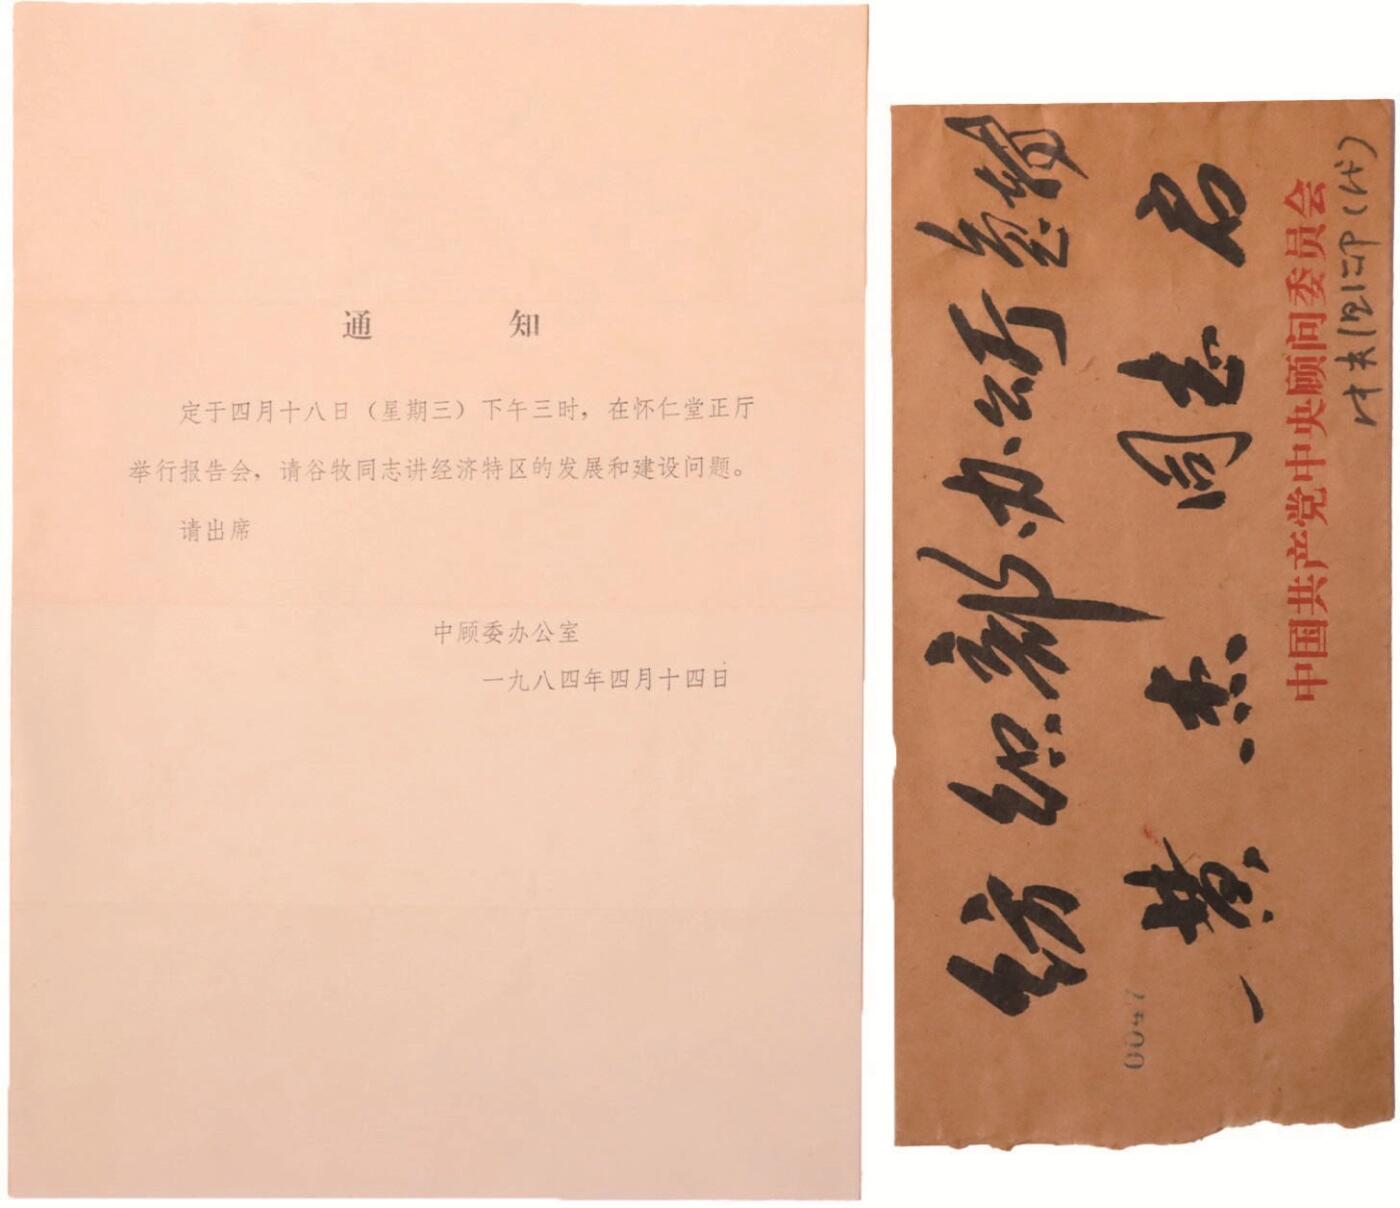 通 知
定于四月十八日（星期三）下午三时，在怀仁堂正厅
举行报告会，请谷牧同志讲经济特区的发展和建设问题。
请出席
中顾委办公室
一九八四年四月十四日
纺织部办公厅
黄 杰 同志 启
中国共产党中央顾问委员会
00047